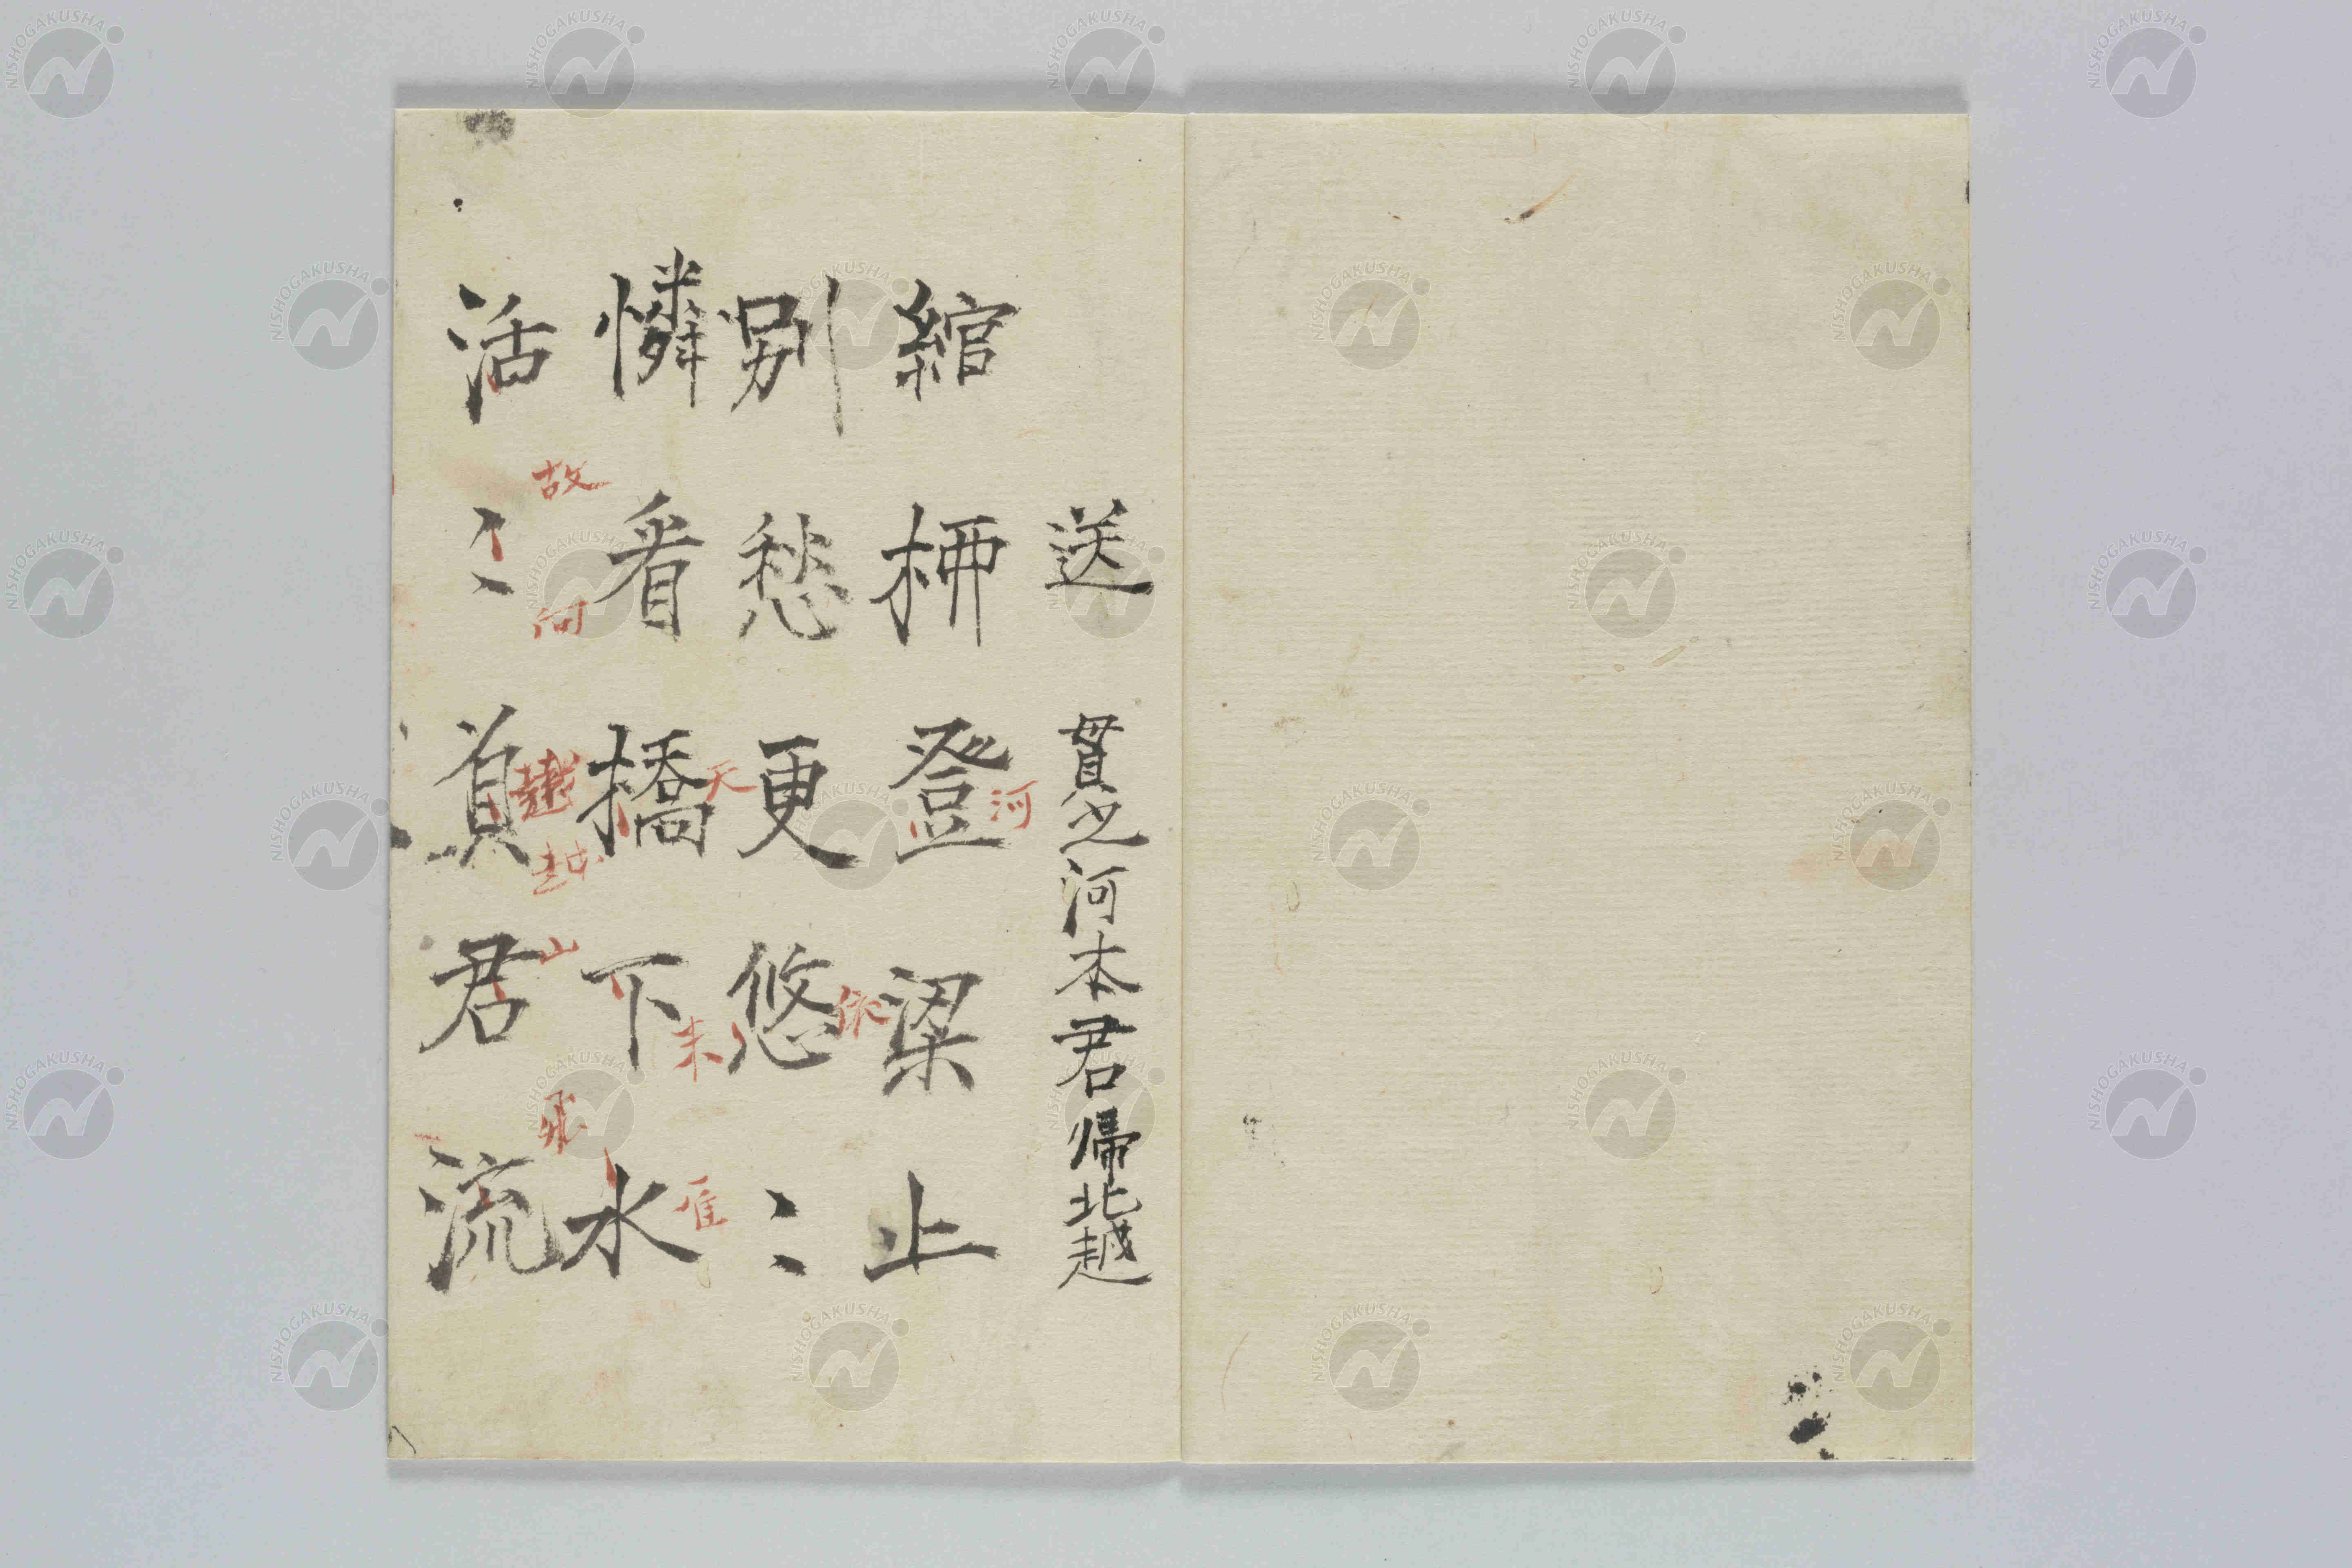 送 貫之河本君帰北越
綰柳登梁止
河
別愁更悠〻
依
憐看橋下水
天
未
雁
活〻負君流
故
向
越
山
飛
NISHOGAKUSHA